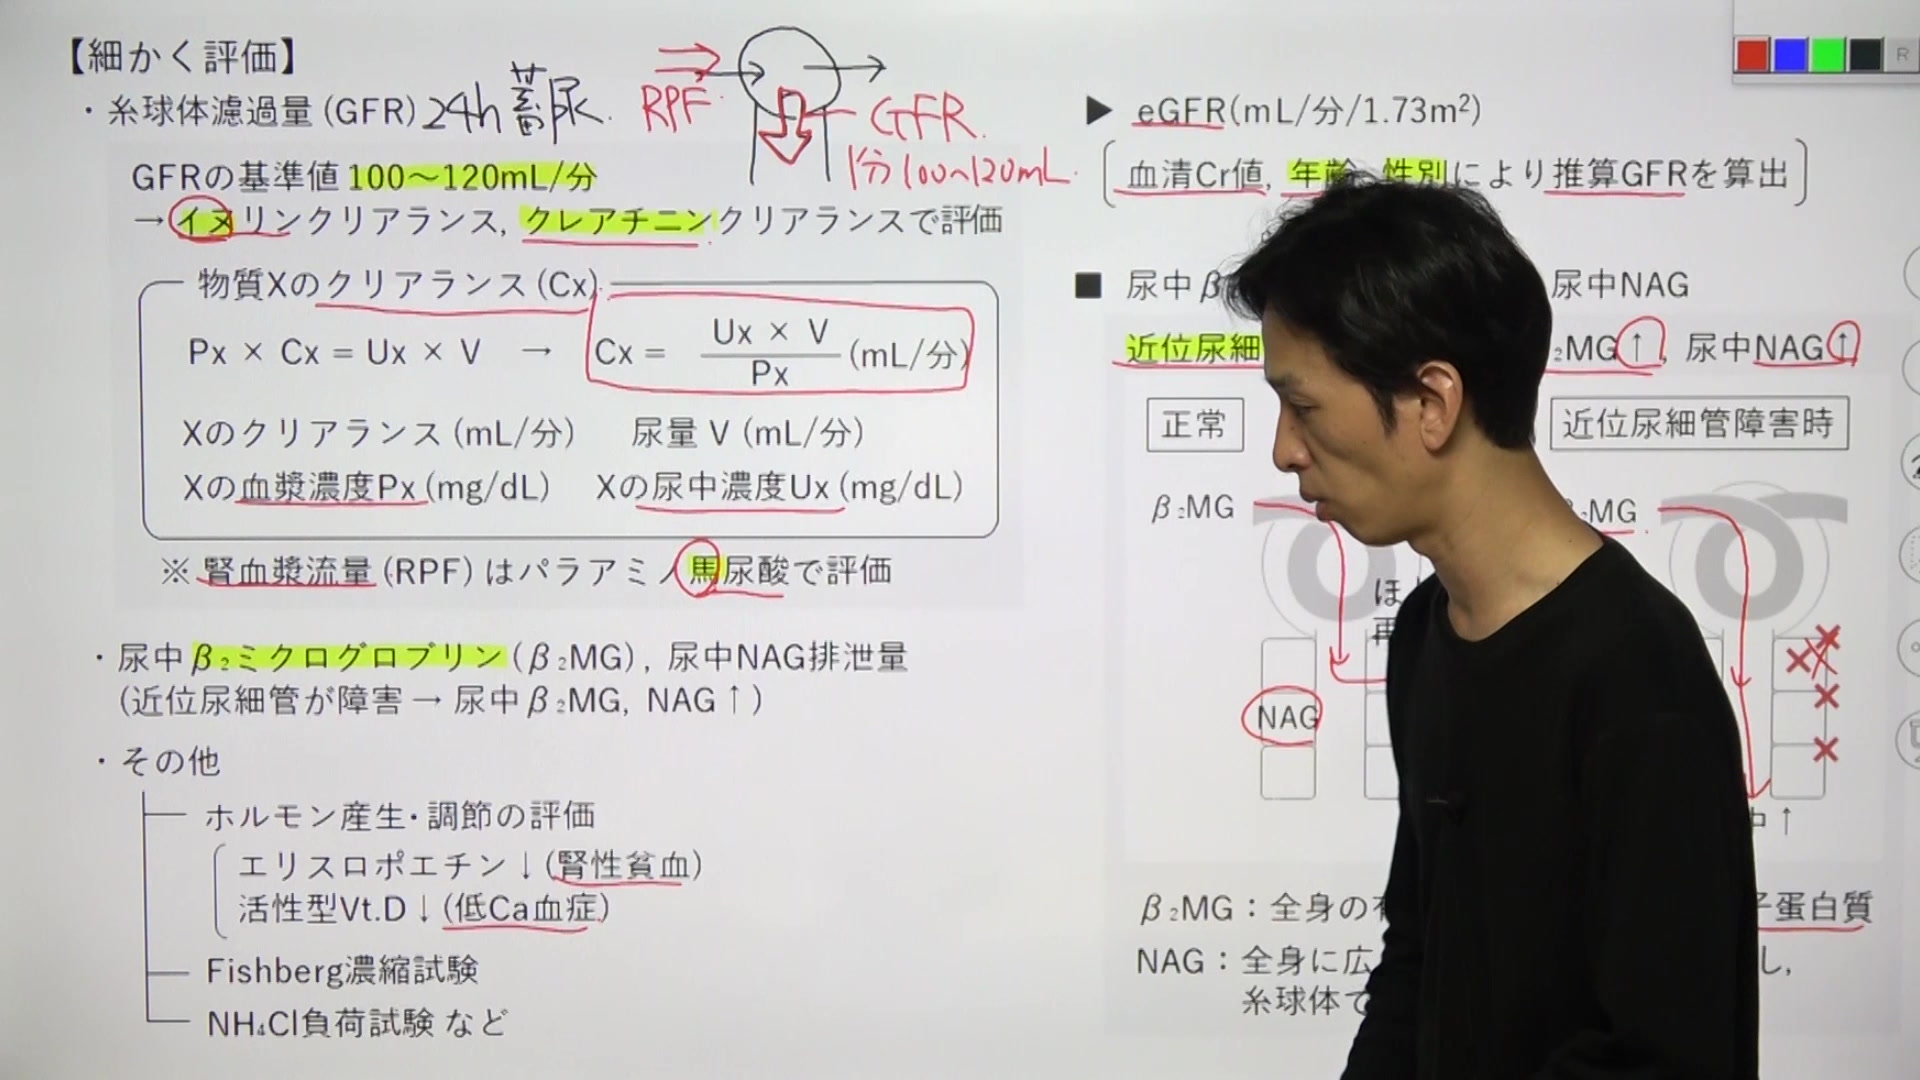 【細かく評価】
・糸球体濾過量(GFR) 24h 蓄尿.
RPF
GFR.
1分 100〜120mL.
GFRの基準値 100〜120mL/分
→イヌリンクリアランス, クレアチニンクリアランスで評価
物質Xのクリアランス(Cx)
Px × Cx = Ux × V → Cx = Ux × V / Px (mL/分)
Xのクリアランス(mL/分) 尿量 V (mL/分)
Xの血漿濃度Px(mg/dL) Xの尿中濃度Ux(mg/dL)
※ 腎血漿流量(RPF)はパラアミノ馬尿酸で評価
・尿中β₂ミクログロブリン(β₂MG), 尿中NAG排泄量
(近位尿細管が障害→ 尿中β₂MG, NAG↑)
・その他
ホルモン産生・調節の評価
エリスロポエチン↓(腎性貧血)
活性型Vt.D↓(低Ca血症)
Fishberg濃縮試験
NH₄Cl負荷試験 など
▶ eGFR(mL/分/1.73m²)
血清Cr値, 年齢, 性別により推算GFRを算出
■ 尿中β 尿中NAG
近位尿細 ₂MG↑, 尿中NAG↑
正常 近位尿細管障害時
β₂MG ₂MG
ほ
再
NAG
↑
β₂MG：全身の 蛋白質
NAG：全身に広 し,
糸球体で
R